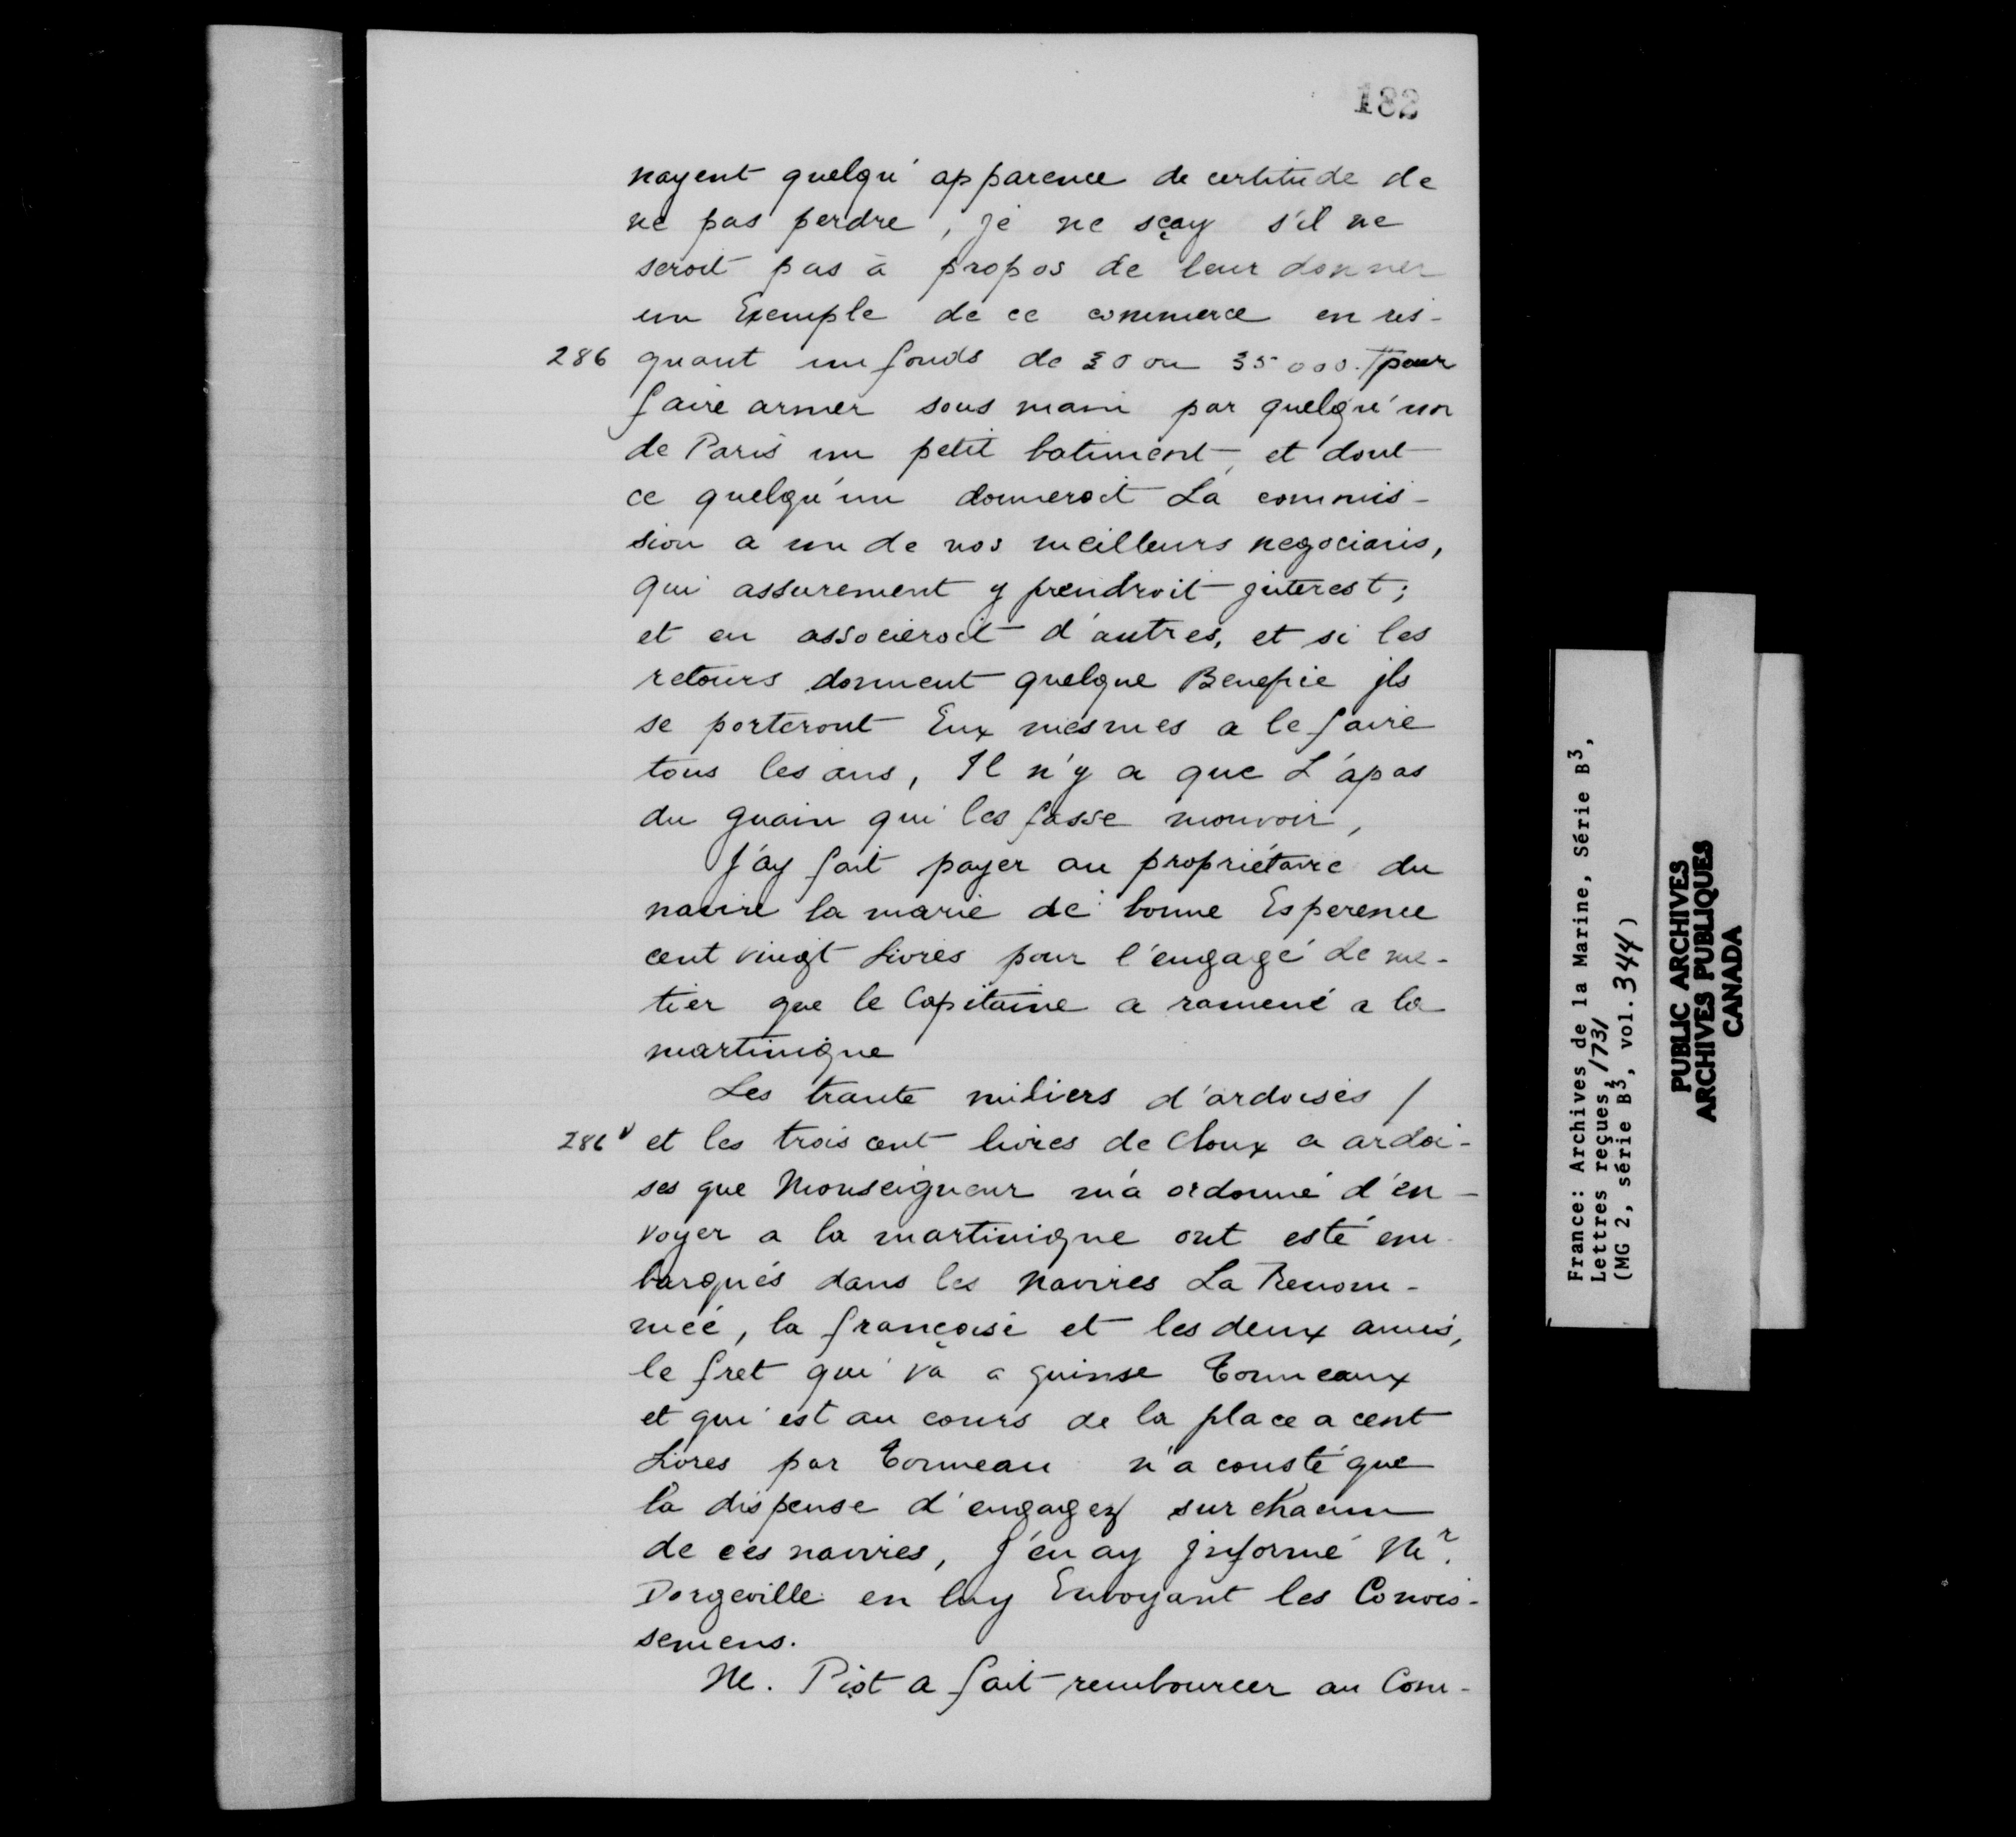 182
nayent quelqu'apparence de certitude de
ne pas perdre, je ne sçay s'il ne
seroit pas à propos de leur donner
un Exemple de ce commerce en ris-
286 quant un fonds de 30 ou 35000.₶ pour
faire armer sous main par quelqu'un
de Paris un petit batiment, et dont
ce quelqu'un donneroit La commis-
sion a un de nos meilleurs negocians,
qui assurement y prendroit jnterest;
et en associeroit d'autres, et si les
retours donnent quelque Benefice jls
se porteront Eux mesmes a le faire
tous les ans, Il n'y a que L'apas
du guain qui les fasse mouvoir,
J'ay fait payer au propriétaire du
navire la marie de bonne Esperence
cent vingt Livres pour l'engagé de me-
tier que le Capitaine a ramené a la
martinique
Les trante miliers d'ardoises /
286v et les trois cent livres de cloux a ardoi-
ses que Monseigneur m'a ordonné d'en-
voyer a la martinique ont esté em-
barqués dans les navires La Renom-
mée, la françoise et les deux amis,
le fret qui va a quinse Tonneaux
et qui est au cours de la place a cent
Livres par Tonneau n'a cousté que
la dispense d'engagez sur chacun
de ces navires, J'en ay jnformé Mr.
Dorgeville en luy Envoyant les Conois-
semens.
M. Piot a fait rembourcer au Com-
France: Archives de la Marine, Série B3,
Lettres reçues, 1731
(MG 2, série B3, vol. 344)
PUBLIC ARCHIVES
ARCHIVES PUBLIQUES
CANADA